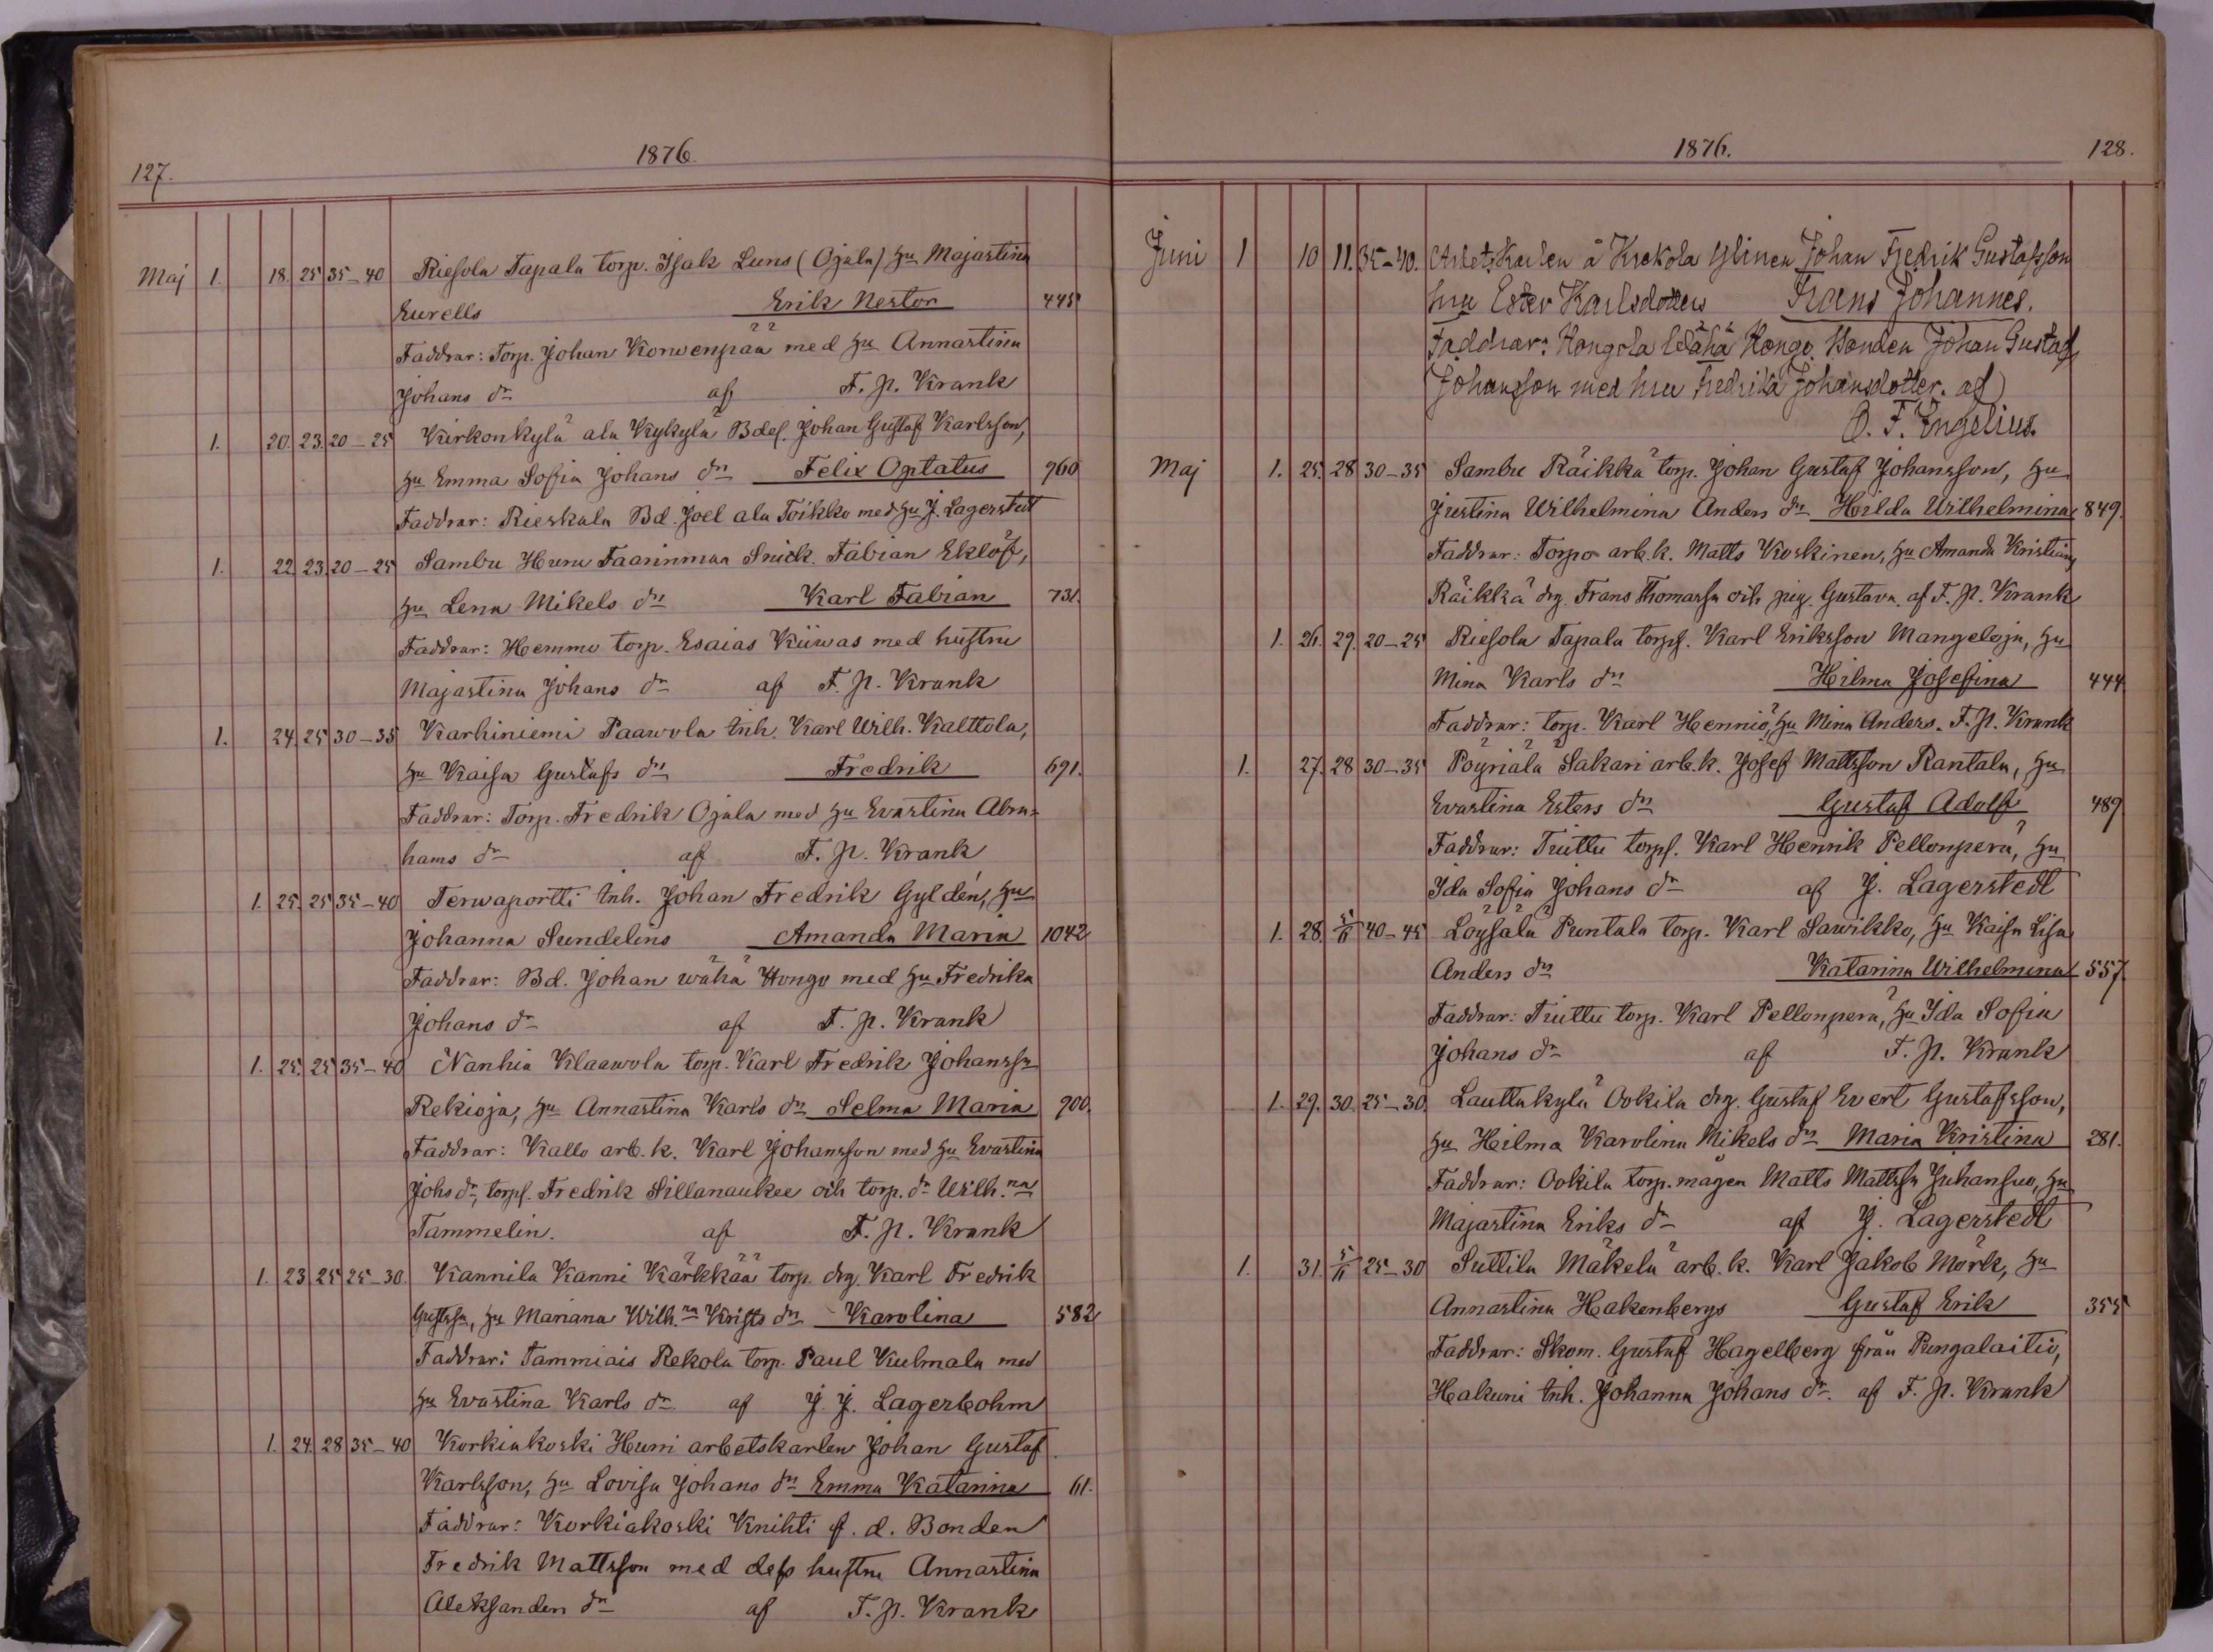 127.
1876.
Maj 1. 18. 25 35–40 Riesola Tapala torp. Isak Luns (Ojala) hu Majastina
Eurells Erik Nestor 445
Faddrar: Torp. Johan Korwenpää med hu Annastina
Johans dr af F. P. Krank
1. 20. 23. 20–25 Kirkonkylä ala Kykylä Bdes. Johan Gustaf Karlsson,
hu Emma Sofia Johans dr Felix Optatus 960
Faddrar: Rieskala Bd. Joel ala Toikko med hu J. Lagerstedt
1. 22. 23. 20–25 Sambu Huru Faarinmaa Snick. Fabian Eklöf,
hu Lena Mikels dr Karl Fabian 731.
Faddrar: Hemmo torp. Esaias Kiiwas med hustru
Majastina Johans dr af F. P. Krank
1. 24. 25 30–35 Karhiniemi Paawola inh. Karl Wilh. Kalttola,
hu Kaisa Gustafs dr Fredrik 691.
Faddrar: Torp. Fredrik Ojala med hu Evastina Abra=
hams dr af F. P. Krank
1. 25. 25 35–40 Terwaportti inh. Johan Fredrik Gyldén, hu
Johanna Sundelins Amanda Maria 1042
Faddrar: Bd. Johan wähä Hongo med hu Fredrika
Johans dr af F. P. Krank
1. 25. 25 35–40 Nanhia Klaawola torp. Karl Fredrik Johanss.
Rekioja, hu Annastina Karls dr Selma Maria 900.
Faddrar: Kallo arb. k. Karl Johansson med hu Evastina
Johs dr, torps. Fredrik Sillanaukee och torp. dr Wilh.na
Tammelin. af F. P. Krank
1. 23 25 25–30. Kannila Kanni Kärkkää torp. drg. Karl Fredrik
Gustfsn, hu Mariana Wilh.na Krists dr Karolina 582
Faddrar: Tammiais Rekola torp. Paul Kulmala med
hu Evastina Karls dr. af J. J. Lagerbohm
1. 24. 28 35–40 Korkiakoski Huni arbetskarlen Johan Gustaf
Karlsson, hu Lovisa Johans dr Emma Katarina 61.
Faddrar: Korkiakoski Knihti f. d. Bonden
Fredrik Mattsson med dess hustru Annastina
Aleksanders dr af F. P. Krank
1876. 128.
Juni 1 10 11. 35–40. Arbetskarlen å Krekola Ylinen Johan Fredrik Gustafsson
hru Ester Karlsdotters Frans Johannes.
Faddrar: Hongola Wähä Hongo Bonden Johan Gustaf
Johansson med hru Fredrika Johansdotter. af
O. F. Engelius.
Maj 1. 25. 28 30–35 Sambu Räikkä torp. Johan Gustaf Johansson, hu
Justina Wilhelmina Anders dr Hilda Wilhelmina 849.
Faddrar: Torpo arb. k. Matts Koskinen, hu Amanda Kristina,
Räikkä drg. Frans Thomassn och pig. Gustava. af F. P. Krank
1. 26. 29. 20–25 Riesola Tapala torps. Karl Eriksson Mangeloja, hu
Mina Karls dr Hilma Josefina 444
Faddrar: torp. Karl Henniö, hu Mina Anders. F. P. Krank
1. 27. 28 30–35 Pöyriälä Sakari arb. k. Josef Mattsson Rantala, hu
Evastina Esters dr Gustaf Adolf 489
Faddrar: Truttu torps. Karl Henrik Pellonperä, hu
Ida Sofia Johans dr af J. Lagerstedt
1. 28. 5/11 40–45 Löysälä Puntala torp. Karl Sawikko, hu Kaisa Lisa
Anders dr Katarina Wilhelmina 557.
Faddrar: Truttu torp. Karl Pellonperä, hu Ida Sofia
Johans dr af F. P. Krank
1. 29. 30. 25–30. Lauttakylä Ookila drg. Gustaf Evert Gustafsson,
hu Hilma Karolina Mikels dr Maria Kristina 281.
Faddrar: Ookila torp. mågen Matts Mattssn Juhansuo, hu
Majastina Eriks dr af J. Lagerstedt
1. 31. 5/11 25–30 Suttila Mäkelä arb. k. Karl Jakob Mörk, hu
Annastina Hakenbergs Gustaf Erik 355
Faddrar: Skom. Gustaf Hagelberg från Pungalaitio,
Hakuni inh. Johanna Johans dr. af F. P. Krank